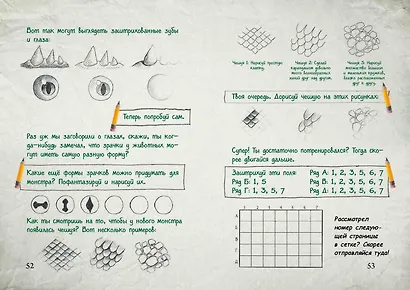 Вот так могут выглядеть заштрихованные зубы
и глаза:
Теперь попробуй сам.
Раз уж мы заговорили о глазах, скажи, ты ког-
да-нибудь замечал, что зрачки у животных мо-
гут иметь самую разную форму?
Какие ещё формы зрачков можно придумать для
монстра? Пофантазируй и нарисуй их.
Как ты смотришь на то, чтобы у нового монстра
появилась чешуя? Вот несколько примеров:
52
Чешуя 1: Нарисуй простую
клетку.
Чешуя 2: Сделай
карандашом
друг над другом.
Чешуя 3: Нарисуй
множество больших
и маленьких кружков,
близко расположенных
друг к другу.
Твоя очередь. Дорисуй чешую на этих рисунках:
Супер! Ты достаточно потренировался? Тогда ско-
рее двигайся дальше.
Заштрихуй эти поля:
Ряд Б: 1, 5
Ряд Г: 1, 3, 5, 7
Ряд А: 1, 2, 3, 5, 6, 7
Ряд В: 1, 2, 3, 5, 6, 7
Ряд Д: 1, 2, 3, 5, 6, 7
Рассмотрел
номер следую-
щей страницы
в сетке? Скорее
отправляйся туда!
53